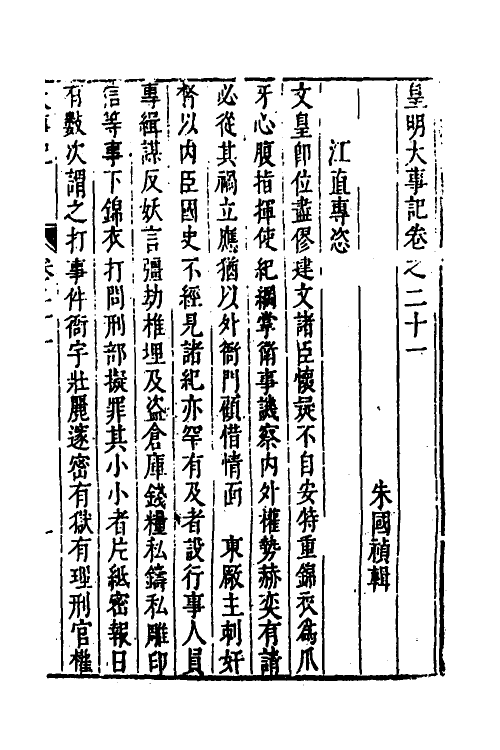 皇明大事記卷之二十一
朱國禎輯
江直專恣
文皇卽位盡僇建文諸臣懷疑不自安特重錦衣爲爪
牙心腹指揮使紀綱掌衛事譏察内外權勢赫奕有請
必從其禍立應猶以外衙門顧借情面　東厰主刺奸
以内臣國史不經見諸紀亦罕有及者設行事人員
專緝謀反妖言彊劫椎埋及盗倉庫錢糧私鑄私雕印
信等事下錦衣打問刑部擬罪其小小者片紙密報日
有數次謂之打事件衙宇壯麗邃密有獄有理刑官權